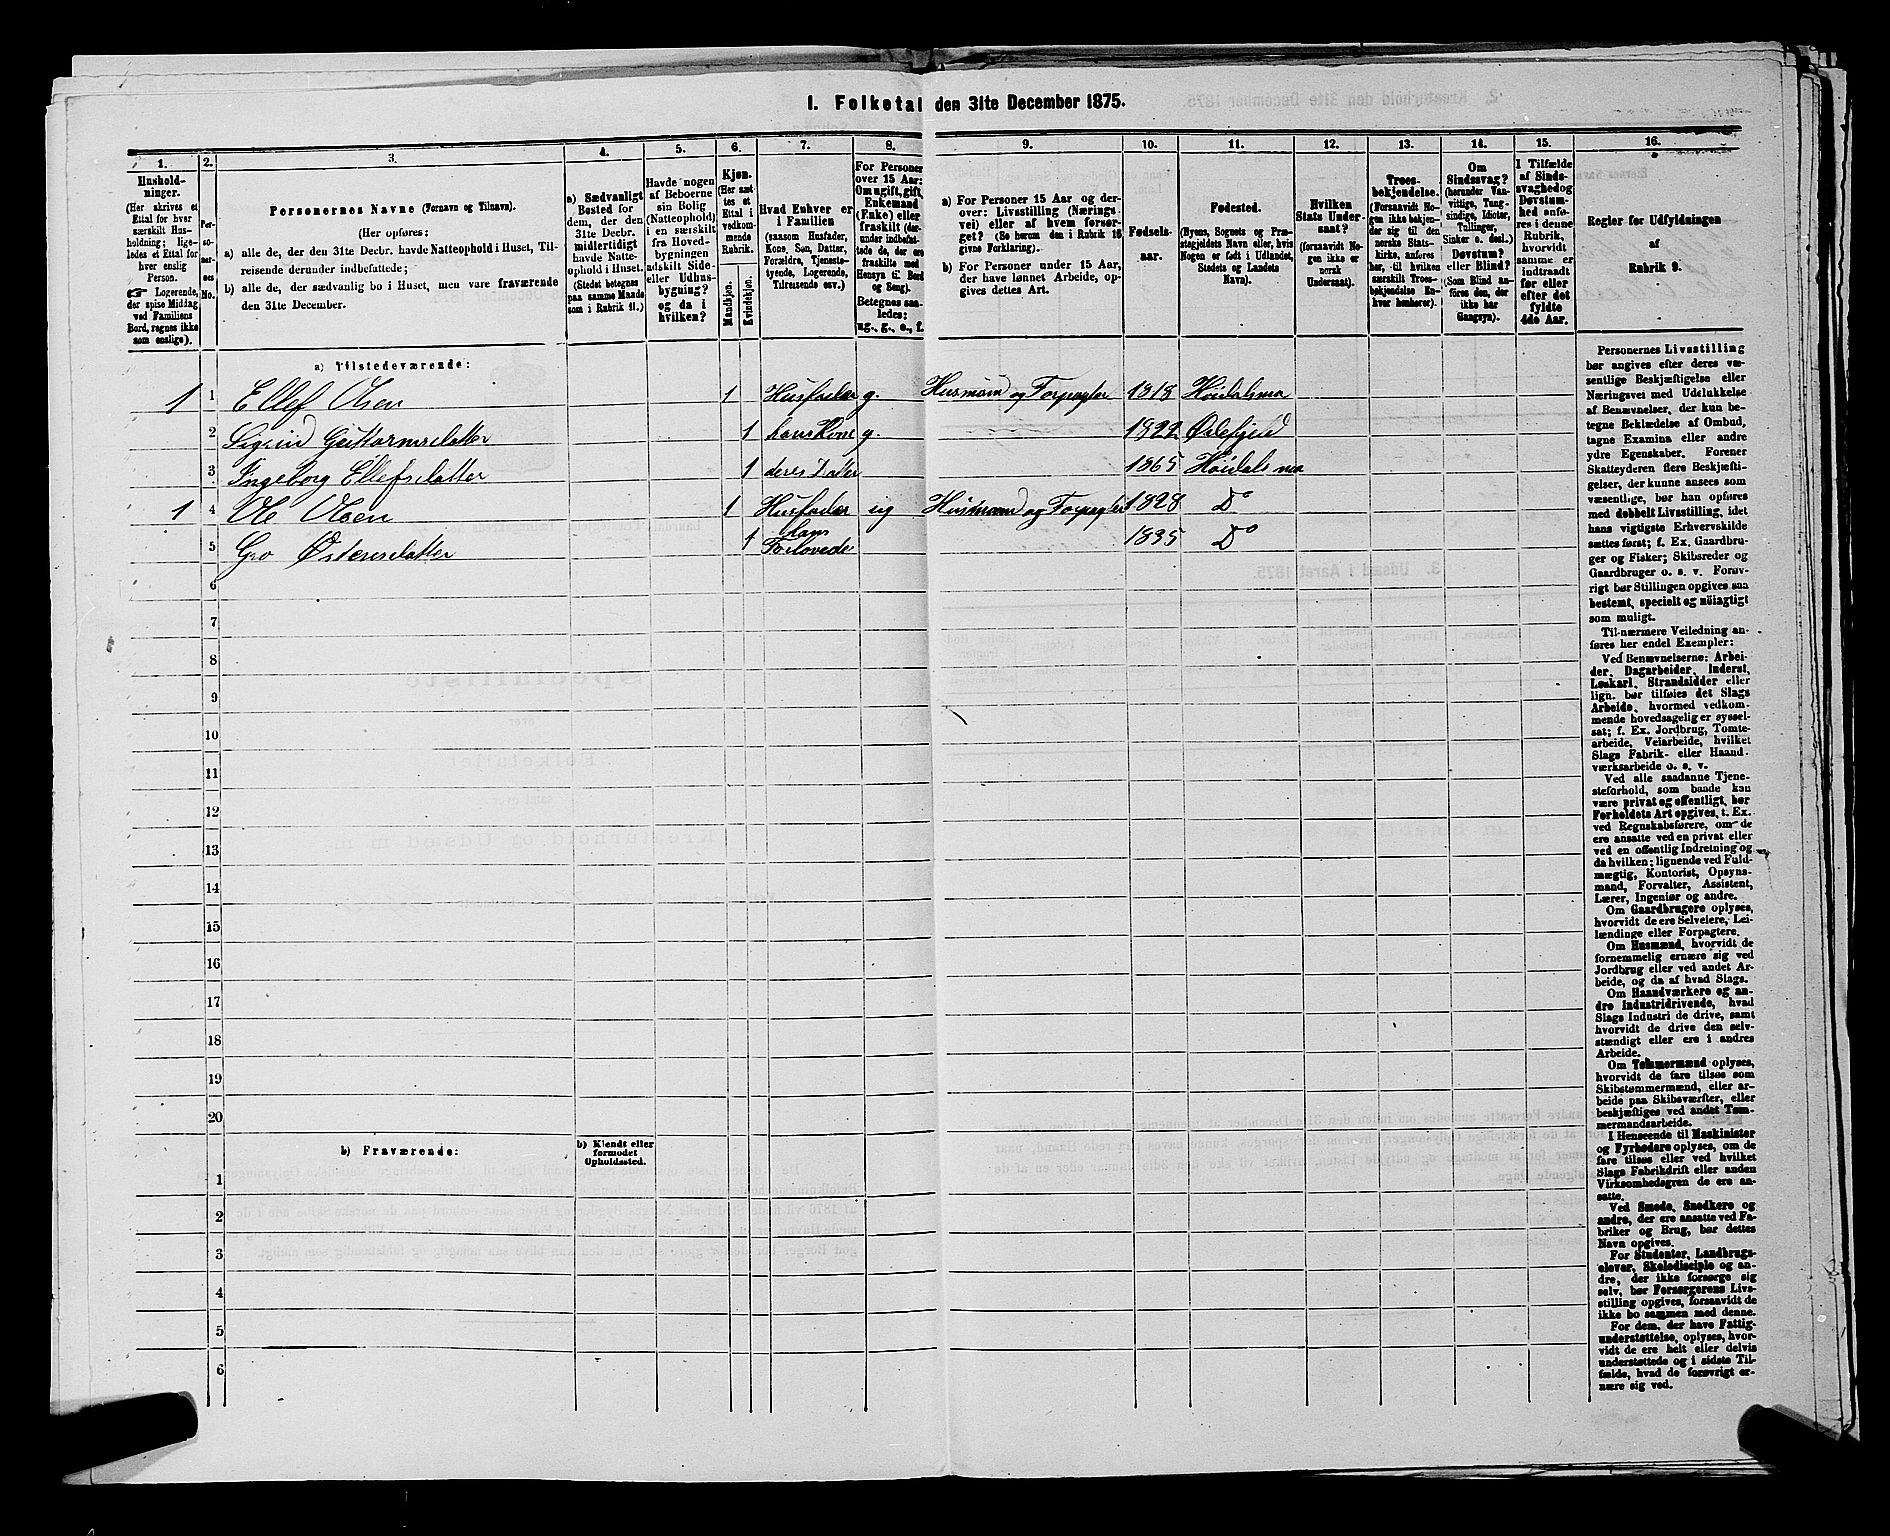 I. Folketal den 31te December 1875.
1. 2. 3. 4. 5. 6. 7. 8. 9. 10. 11. 12. 13. 14. 15. 16.
Hushold-
ninger.
(Her skrives et
Ettal for hver
særskilt Hus-
holdning; lige-
ledes et Ettal for
hver enslig
Person.
☞ Logerende,
der spise Middag
ved Familiens
Bord, regnes ikke
som enslige).
Per-
so-
ner-
nes
No.
Personernes Navne (Fornavn og Tilnavn).
(Her opføres:
a) alle de, der den 31te Decbr. havde Natteophold i Huset, Til-
reisende derunder indbefattede;
b) alle de, der sædvanlig bo i Huset, men vare fraværende
den 31te December.
a) Sædvanligt
Bosted for
dem, der den
31te Decbr.
midlertidigt
havde Natte-
ophold i Huset.
(Stedet betegnes
paa samme Maade
som i Rubrik 11.)
Havde nogen
af Beboerne
sin Bolig
(Natteophold)
i en særskilt
fra Hoved-
bygningen
adskilt Side-
eller Udhus-
bygning?
og da i
hvilken?
Kjøn.
(Her sæt-
tes et
Ettal i
vedkom-
mende
Rubrik.
Mandkjøn.
Kvindekjøn.
Hvad Enhver er
i Familien
(saasom Husfader,
Kone, Søn, Datter,
Forældre, Tjeneste-
tyende, Logerende,
Tilreisende osv.)
For Personer
over 15 Aar:
Om ugift, gift,
Enkemand
(Enke) eller
fraskilt (der-
under indbefat-
tede de, der ere
fraskilte med
Hensyn til Bord
og Seng).
Betegnes saa-
ledes:
ug., g., e., f.
a) For Personer 15 Aar og der-
over: Livsstilling (Nærings-
vei) eller af hvem forsør-
get? (Se herom den i Rubrik 16
givne Forklaring).
b) For Personer under 15 Aar,
der have lønnet Arbeide, op-
gives dettes Art.
Fødsels-
aar.
Fødested.
(Byens, Sognets og Præ-
stegjeldets Navn eller, hvis
Nogen er født i Udlandet,
Stedets og Landets
Navn).
Hvilken
Stats Under-
saat?
(forsaavidt No-
gen ikke er
norsk
Undersaat).
Troes-
bekjendelse.
(Forsaavidt No-
gen ikke bekjen-
der sig til den
norske Stats-
kirke, anføres
her, til hvilken
særskilt Troes-
bekjendelse En-
hver henhører).
Om
Sindssvag?
(herunder Van-
vittige, Tung-
sindige, Idioter,
Tullinger,
Sinker o. desl.)
Døvstum?
eller Blind?
(Som Blind an-
føres den, der
ikke har
Gangsyn).
I Tilfælde
af Sinds-
svaghed og
Døvstum-
hed anfø-
res i denne
Rubrik,
hvorvidt
samme er
indtraadt
før eller
efter det
fyldte
4de Aar.
Regler for Udfyldningen
af
Rubrik 9.
a) Tilstedeværende:
1 1 Ellef Olsen 1 Husfader g. Husmand og Forpagter 1818 Høidalsmo
2 Sigrid Guttormsdatter 1 hans Kone g. 1822 Ødefjeld
3 Ingeborg Ellefsdatter 1 deres Dater 1865 Høidalsmo
1 4 Ole Olsen 1 Husfader ug Husmand og Forpagter 1828 Do
5 Gro Østensdatter 1 Hans Forlovede 1835 Do
6
7
8
9
10
11
12
13
14
15
16
17
18
19
20
b) Fraværende:
b) Kjendt eller
formodet
Opholdssted.
1
2
3
4
5
6
Personernes Livsstilling
bør angives efter deres væ-
sentlige Beskjæftigelse eller
Næringsvei med Udelukkelse
af Benævnelser, der kun be-
tegne Beklædelse af Ombud,
tagne Examina eller andre
ydre Egenskaber. Forener
Skatteyderen flere Beskjæfti-
gelser, der kunne ansees som
væsentlige, bør han opføres
med dobbelt Livsstilling, idet
hans vigtigste Erhvervskilde
sættes først; f. Ex. Gaardbru-
ger og Fisker; Skibsreder og
Gaardbruger o. s. v. Forøv-
rigt bør Stillingen opgives saa
bestemt, specielt og nøiagtigt
som muligt.
Til nærmere Veiledning an-
føres her endel Exempler:
Ved Benævnelserne: Arbei-
der, Dagarbeider, Inderst,
Løskarl, Strandsidder eller
lign. bør tilføies det Slags
Arbeide, hvormed vedkom-
mende hovedsagelig er syssel-
sat; f. Ex. Jordbrug, Tomte-
arbeide, Veiarbeide, hvilket
Slags Fabrik- eller Haand-
værksarbeide o. s. v.
Ved alle saadanne Tjene-
steforhold, som baade kan
være privat og offentligt, bør
Forholdets Art opgives, t. Ex.
ved Regnskabsførere, om de
ere ansatte ved en privat eller
ved en offentlig Indretning og
da hvilken; lignende ved Fuld-
mægtig, Kontorist, Opsyns-
mand, Forvalter, Assistent,
Lærer, Ingeniør og andre.
Om Gaardbrugere oplyses,
hvorvidt de ere Selveiere, Lei-
lændinge eller Forpagtere.
Om Husmænd, hvorvidt de
fornemmelig ernære sig ved
Jordbrug eller ved andet Ar-
beide, og da af hvad Slags.
Om Haandværkere og an-
dre Industridrivende, hvad
Slags Industri de drive, samt
hvorvidt de drive den selv-
stændigt eller ere i andres
Arbeide.
Om Tømmermænd oplyses,
hvorvidt de fare tilsøs som
Skibstømmermænd, eller ar-
beide paa Skibsværfter, eller
beskjæftiges ved andet Tøm-
mermandsarbeide.
I Henseende til Maskinister
og Fyrbødere oplyses, om de
fare tilsøs eller ved hvad
Slags Fabrikdrift eller anden
Virksomhedsgren de ere an-
satte.
Ved Smede, Snedkere og
andre, der ere ansatte ved Fa-
briker og Brug, bør dettes
Navn opgives.
For Studenter, Landbrugs-
elever, Skoledisciple og an-
dre, der ikke forsørge sig
selv, bør Forsørgerens Livs-
stilling opgives, forsaavidt de
ikke bo sammen med denne.
For dem, der have Fattig-
understøttelse, oplyses, hvor-
vidt de ere helt eller delvis
understøttede og i sidste Til-
fælde, hvad de forøvrigt er-
nære sig ved.